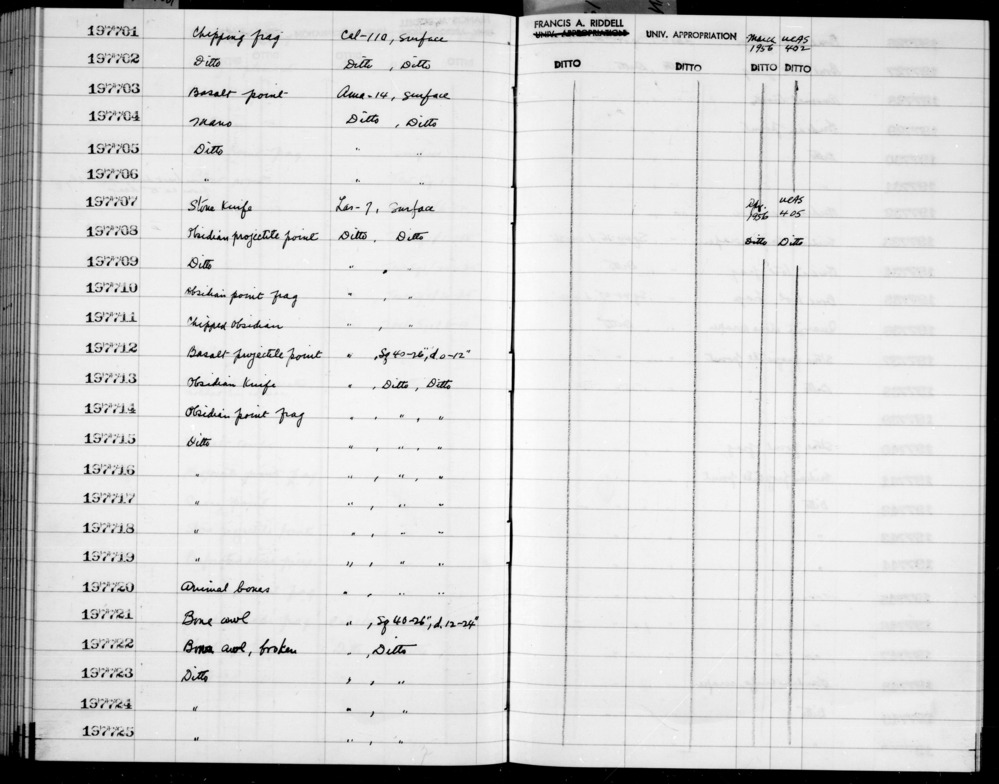 FRANCIS A. RIDDELL
UNIV. APPROPRIATION UNIV. APPROPRIATION March 1956 UCAS 402
197701 Chipping frag Cal-110, surface
197702 Ditto Ditto, Ditto DITTO DITTO DITTO DITTO
197703 Basalt point Ama-14, surface
197704 Mano Ditto, Ditto
197705 Ditto " "
197706 " " "
197707 Stone Knife Las-7, surface 1956 UCAS 405
197708 Obsidian projectile point Ditto, Ditto Ditto Ditto
197709 Ditto " , "
197710 Obsidian point frag " , "
197711 Chipped obsidian " , "
197712 Basalt projectile point " , Sq 40-26", d. 0-12"
197713 Obsidian Knife " , Ditto, Ditto
197714 Obsidian point frag " , " , "
197715 Ditto " , " , "
197716 " " , " , "
197717 " " , " "
197718 " " , " "
197719 " " , " "
197720 Animal bones " , " "
197721 Bone awl " , Sq 40-26", d. 12-24"
197722 Bone awl, broken " , Ditto
197723 Ditto " , "
197724 " " , "
197725 " " , "